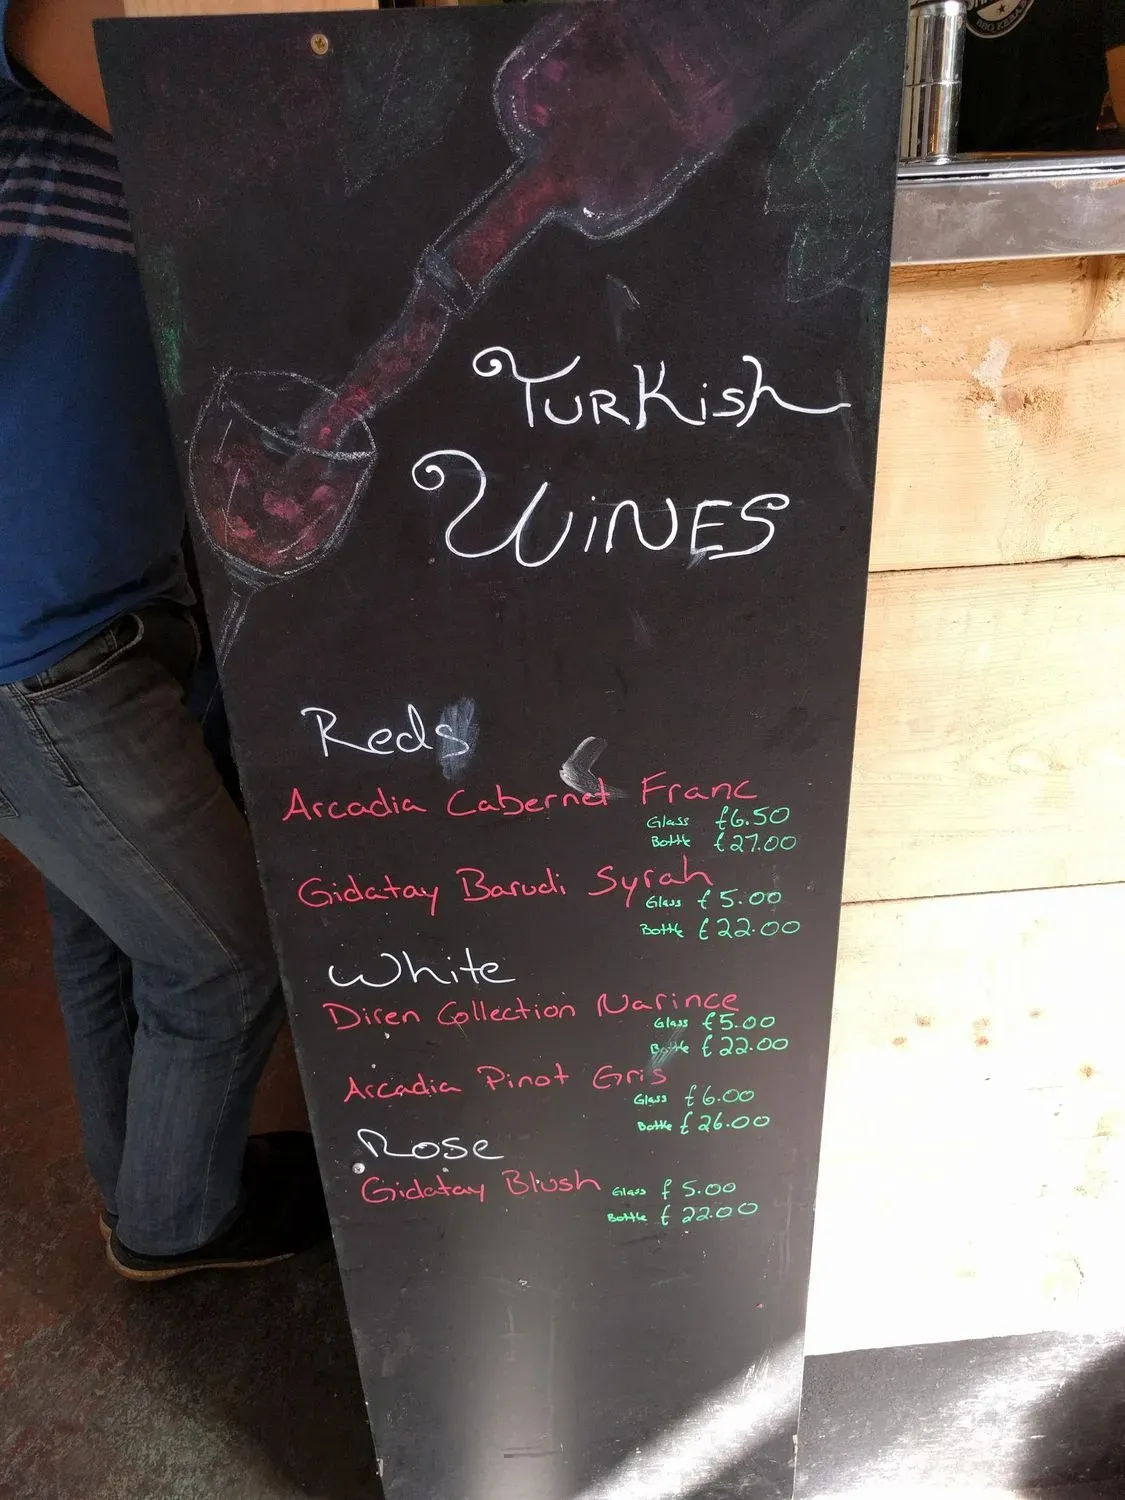 Turkish
Wines
Reds
Arcadia Cabernet Franc
Glass £6.50
Bottle £27.00
Gidatay Barudi Syrah
Glass £5.00
Bottle £22.00
White
Diren Collection Narince
Glass £5.00
Bottle £22.00
Arcadia Pinot Gris
Glass £6.00
Bottle £26.00
Rose
Gidatay Blush
Glass £5.00
Bottle £22.00